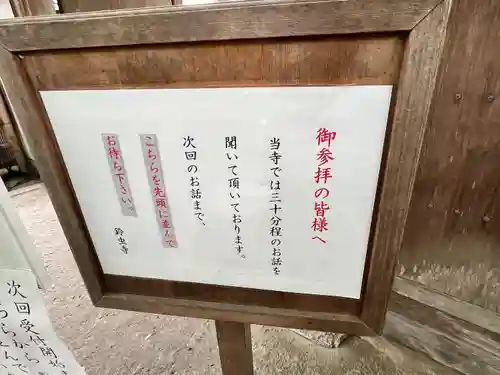 御参拝の皆様へ
当寺では三十分程のお話を
聞いて頂いております。
次回のお話まで、
こちらを先頭に並んで
お待ち下さい。
鈴虫寺
次回受付開